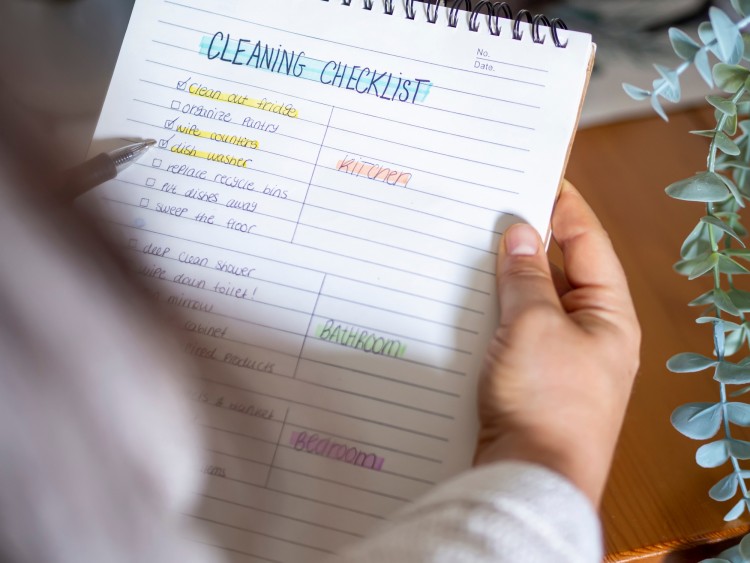 No.
Date.
CLEANING CHECKLIST
clean out fridge
organize pantry
wipe counters
dish washer
replace recycle bins
put dishes away
sweep the floor
KITCHEN
deep clean shower
wipe down toilet!
mirrow
cabinet
products
BATHROOM
&
BEdroom